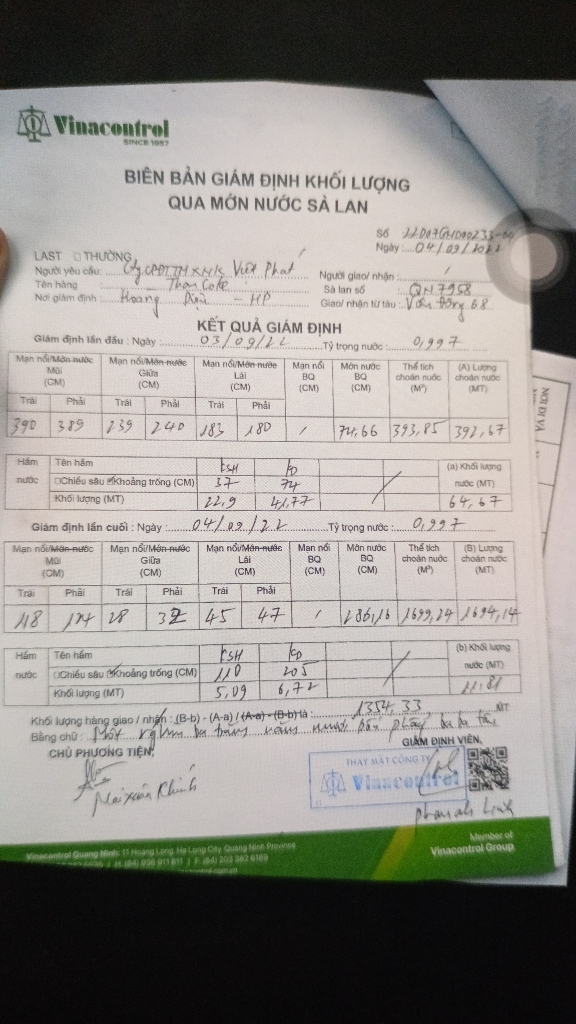 Vinacontrol
SINCE 1957
BIÊN BẢN GIÁM ĐỊNH KHỐI LƯỢNG
QUA MỚN NƯỚC SÀ LAN
Số
Ngày: 04/09/2022
LAST □ THƯỜNG
Người yêu cầu: Cty CPĐTTMXNK Việt Phát
Người giao/ nhận: /
Tên hàng Than Coke
Sà lan số QN7958
Nơi giám định Hoàng Diệu - HP
Giao/ nhận từ tàu: Vân Đồng 68
KẾT QUẢ GIÁM ĐỊNH
Giám định lần đầu: Ngày: 03/09/22 Tỷ trọng nước: 0,997
Mạn nổi/Mớn nước Mũi (CM) Mạn nổi/Mớn nước Giữa (CM) Mạn nổi/Mớn nước Lái (CM) Mạn nổi BQ (CM) Mớn nước BQ (CM) Thể tích choán nước (M³) (A) Lượng choán nước (MT)
Trái Phải Trái Phải Trái Phải
390 389 239 240 183 180 / 74,66 393,85 392,67
Hầm nước Tên hầm KSH KD (a) Khối lượng nước (MT)
□Chiều sâu Khoảng trống (CM) 37 74
Khối lượng (MT) 22,9 41,77 64,67
Giám định lần cuối: Ngày: 04/09/22 Tỷ trọng nước: 0,997
Mạn nổi/Mớn nước Mũi (CM) Mạn nổi/Mớn nước Giữa (CM) Mạn nổi/Mớn nước Lái (CM) Mạn nổi BQ (CM) Mớn nước BQ (CM) Thể tích choán nước (M³) (B) Lượng choán nước (MT)
Trái Phải Trái Phải Trái Phải
118 28 32 45 47 / 286,16 1699,24 1694,14
Hầm nước Tên hầm KSH KD (b) Khối lượng nước (MT)
□Chiều sâu Khoảng trống (CM) 110 205
Khối lượng (MT) 5,09 6,72 11,81
Khối lượng hàng giao / nhận: (B-b) - (A-a) / (A-a) - (B-b) là: 1354,33 MT
Bằng chữ: Một nghìn ba trăm năm mươi bốn phẩy ba ba tấn
CHỦ PHƯƠNG TIỆN,
GIÁM ĐỊNH VIÊN,
THAY MẶT CÔNG TY
Vinacontrol
Mai Xuân Khính
Phan Linh
Vinacontrol Quang Ninh: 11 Hoang Long, Ha Long City, Quang Ninh Province
Member of
Vinacontrol Group